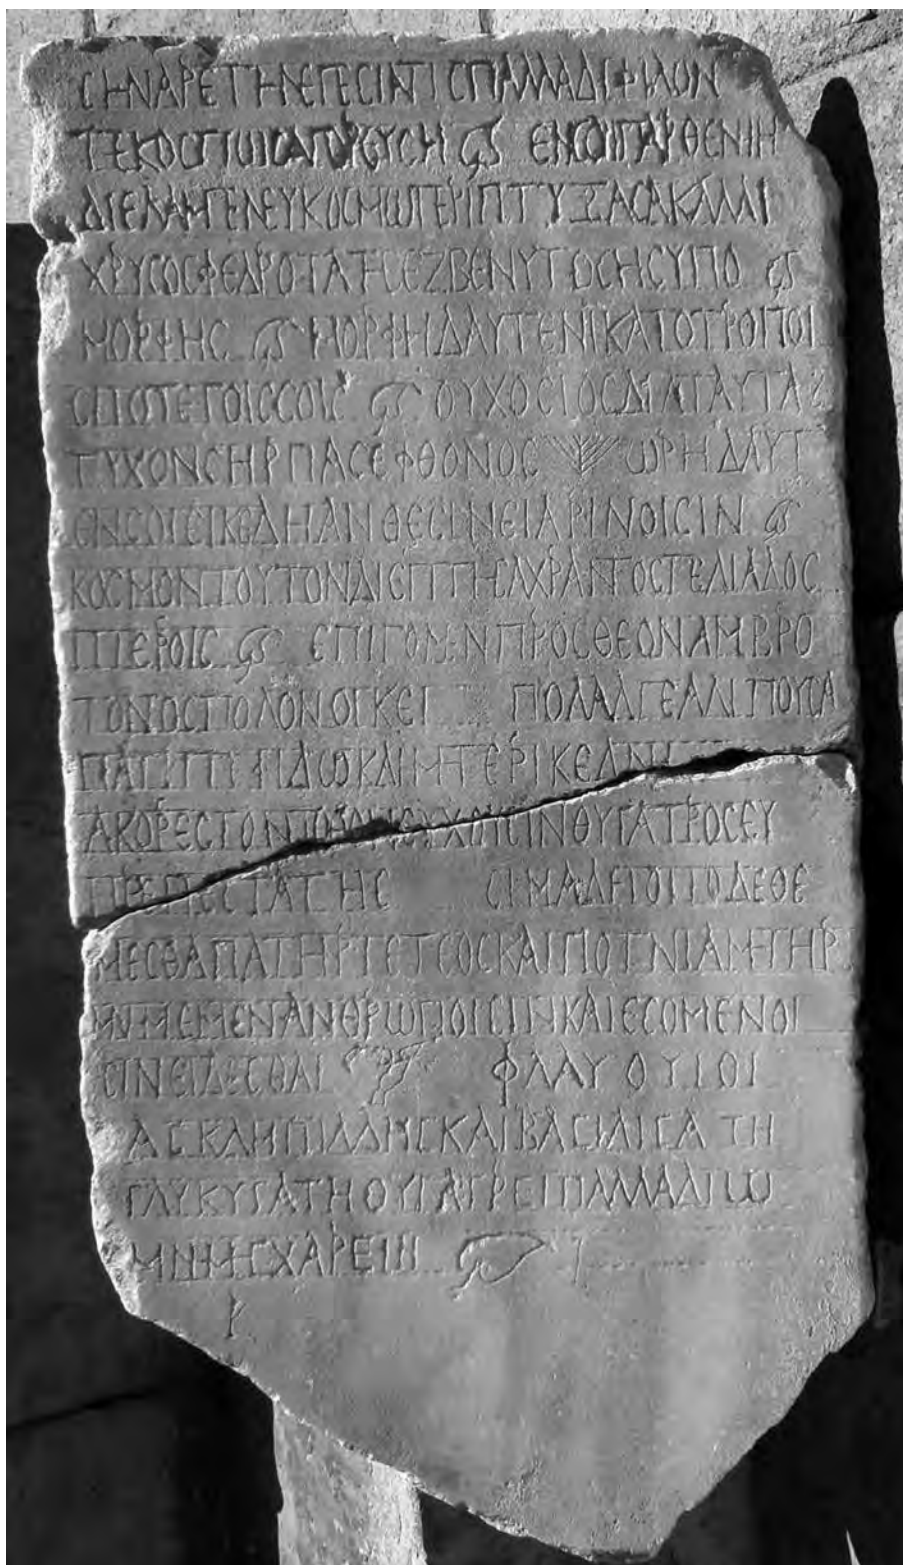 ϹΗΝΑΡΕΤΗΝΕΠΕϹΙΝΤΙϹΠΑΛΛΑΔΙΦΙΛΟΝ
ΤΕΚΟϹ ΕΝϹΟΙΓΑΡΘΕΝΙΗ
ΔΙΕΛΑΜΠΕΝΕΥΚΟϹΜΩΠΕΡΙΠΤΥΞΑϹΑΚΑΛΛΙ
ΧΡΥϹΟϹΦΕΔΡΟΤΑΤΗϹ ΥΠΟ
ΜΟΡΦΗϹ ΜΟΡΦΗΔΑΥΤΕΝΙΚΑΤΟΤΡΟΠΟΙ
ϹΠΙΝΥΤΟΙϹϹΟΙϹ ΟΥΧΟϹΙΟϹΔΙΑΤΑΥΤΑ
ΤΥΧΟΝϹΗΡΠΑϹΕΦΘΟΝΟϹ ΩΡΗΔΑΥΤ
ΕΝϹΟΙΕΙΚΕΛΗΑΝΘΕϹΙΝΕΙΑΡΙΝΟΙϹΙΝ
ΚΟϹΜΟΝΤΟΥΤΟΝΔΙΕΠΤΗϹΑΧΡΑΝΤΟϹΠΕΛΙΑΔΟϹ
ΠΤΕΡΟΙϹ ΕΠΙΓΟΜΕΝΠΡΟϹΘΕΟΝΑΜΒΡΟ
ΤΟΝΟϹΠΟΛΟΝΟΙΚΕΙ ΠΟΛΑΛΓΕΑΛΙΠΟΥϹΑ
ΠΑΤΡΙ ΚΑΙΜΗΤΕΡΙΚΕΔΝΗ
ΑΚΟΡΕϹΤΟΝΠΟΘΟΝΕΥΧΩΙϹΙΝΘΥΓΑΤΡΟϹΕΥ
ΠΡΕΠΕϹΤΑΤΗϹ ϹΗΜΑΔΕΤΟΙΤΟΔΕΘΕ
ΜΕϹΘΑΠΑΤΗΡΤΕΤΕΟϹΚΑΙΠΟΤΝΙΑΜΗΤΗΡ
ΜΝΗΜΕΜΕΝΑΝΘΡΩΠΟΙϹΙΝΚΑΙΕϹΟΜΕΝΟΙ
ϹΙΝΕΙΔΕϹΘΑΙ ΦΛΑΥΟΥΙΟΙ
ΑϹΚΛΗΠΙΑΔΗϹΚΑΙΒΑϹΙΛΙϹΑΤΗ
ΓΛΥΚΥΤΑΤΗΘΥΓΑΤΡΕΙΠΑΛΛΑΔΙΩ
ΜΝΗΜΗϹΧΑΡΕΙΝ